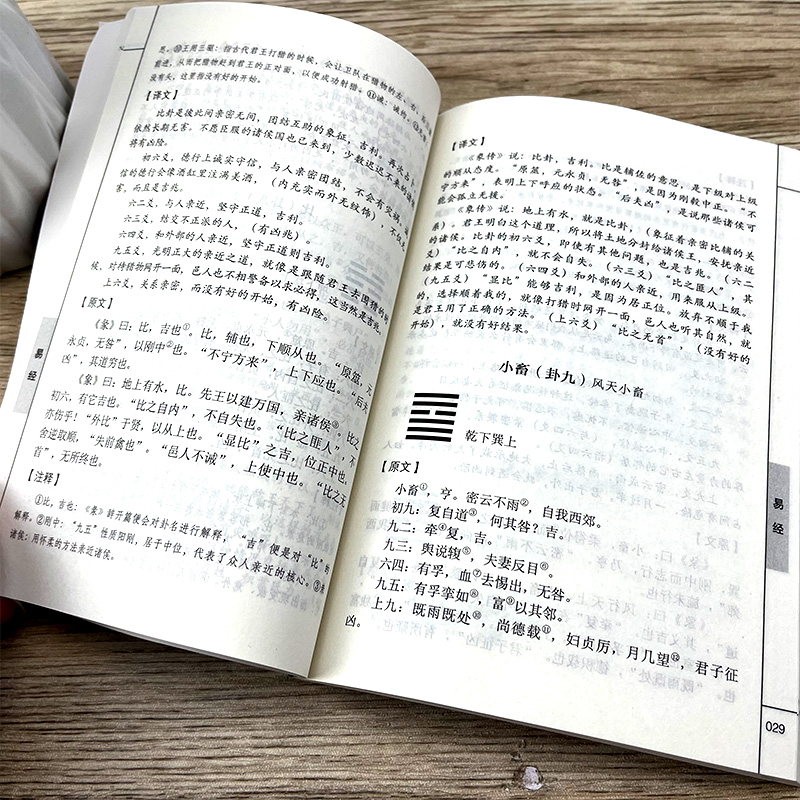 恩。⑩王用三驱：指古代君王打猎的时候，会让卫队在猎物的左、右、后
前进，从而把猎物赶到君王的正对面，以便成功射猎。⑪诫：诫约。⑫
没有头，这里指没有好的开始。
【译文】
比卦是彼此间亲密无间，团结互助的象征，吉利。再次占卜
依然长期无害。不愿臣服的诸侯国也已来到，少数迟迟不来的诸侯
将有凶险。
初六爻，德行上诚实守信，与人亲密团结，不会有灾祸。诚
信的德行会像酒缸里注满美酒，（内充实而外无纹饰），不仅
害，而且是吉兆。
六二爻，与人亲近，坚守正道，吉利。
六三爻，结交不正派的人，（有凶兆）。
六四爻，和外部的人亲近，坚守正道则吉利。
九五爻，光明正大的亲近之道，就像是跟随君王去围猎的
候，对待猎物网开一面，邑人也不相警备以求必得，这当然是吉兆。
上六爻，关系亲密，而没有好的开始，有凶险。
【原文】
《彖》曰：比，吉也①。比，辅也，下顺从也。“原筮，元
永贞，无咎”，以刚中②也。“不宁方来”，上下应也。“后夫
凶”，其道穷也。
《象》曰：地上有水，比。先王以建万国，亲诸侯③。比之
初六，有它吉也。“比之自内”，不自失也。“比之匪人”，不
亦伤乎！“外比”于贤，以从上也。“显比”之吉，位正中也。
舍逆取顺，“失前禽也”。“邑人不诫”，上使中也。“比之无
首”，无所终也。
【注释】
①比，吉也：《彖》辞开篇便会对卦名进行解释，“吉”便是对“比”的
解释。②刚中：“九五”性质阳刚，居于中位，代表了众人亲近的核心。③
诸侯：用怀柔的方法亲近诸侯。
易
经
【译文】
《彖传》说：比卦，吉利。比是辅佐的意思，是下级对上级
的顺从态度。“原筮，元永贞，无咎”，是因为刚毅中正。“不
宁方来”，表明上下呼应的状态。“后夫凶”，是说那些诸侯可
能会孤立无援。
《象传》说：地上有水，就是比卦，（象征着亲密比辅的关
系）。君王明白这个道理，所以将土地分封给诸侯王，安抚亲近
的诸侯。比卦的初六爻，即使有其他问题，也是吉兆。（六二
爻）“比之自内”，就不会自失。（六三爻）“比之匪人”，其
结果是可悲伤的。（六四爻）和外部的人亲近，用来服从上级。
（九五爻）“显比”能够吉利，是因为居正位。放弃不顺于我
的，选择顺着我的，就像打猎时网开一面，邑人也听其自然，就
是君王用了正确的方法。（上六爻）“比之无首”，（没有好的
开始），就没有好结果。
小畜（卦九）风天小畜
乾下巽上
【原文】
小畜①，亨。密云不雨②，自我西郊。
初九：复自道③，何其咎？吉。
九二：牵④复，吉。
九三：舆说辐⑤，夫妻反目⑥。
六四：有孚，血⑦去惕出，无咎。
九五：有孚挛如⑧，富⑨以其邻。
上九：既雨既处⑩，尚德载⑪，妇贞厉，月几望⑫，君子征
凶。
易
经
029